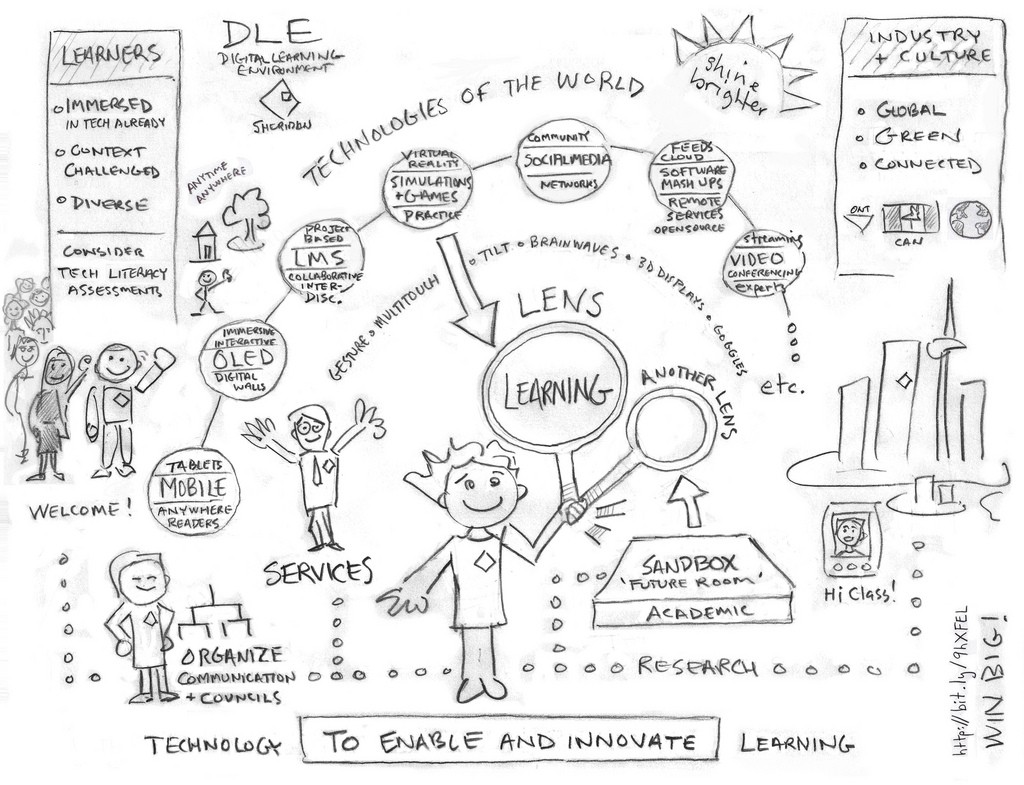 LEARNERS
IMMERSED
IN TECH ALREADY
CONTEXT
CHALLENGED
DIVERSE
CONSIDER
TECH LITERACY
ASSESSMENTS
DLE
DIGITAL LEARNING
ENVIRONMENT
SHERIDAN
ANYTIME
ANYWHERE
TECHNOLOGIES OF THE WORLD
shine
brighter
INDUSTRY
+ CULTURE
GLOBAL
GREEN
CONNECTED
ONT
CAN
TABLETS
MOBILE
ANYWHERE
READERS
IMMERSIVE
INTERACTIVE
OLED
DIGITAL
WALLS
PROJECT
BASED
LMS
COLLABORATIVE
INTER-
DISC.
VIRTUAL
REALITY
SIMULATIONS
+ GAMES
PRACTICE
COMMUNITY
SOCIAL MEDIA
NETWORKS
FEEDS
CLOUD
SOFTWARE
MASH UPS
REMOTE
SERVICES
OPEN SOURCE
streaming
VIDEO
CONFERENCING
experts
etc.
GESTURE o MULTITOUCH o TILT o BRAINWAVES o 3D DISPLAYS o GOGGLES
LENS
LEARNING
ANOTHER LENS
WELCOME!
SERVICES
SANDBOX
'FUTURE ROOM'
ACADEMIC
Hi Class!
ORGANIZE
COMMUNICATION
+ COUNCILS
RESEARCH
TECHNOLOGY TO ENABLE AND INNOVATE LEARNING
http://bit.ly/9hXFEL
WIN BIG!